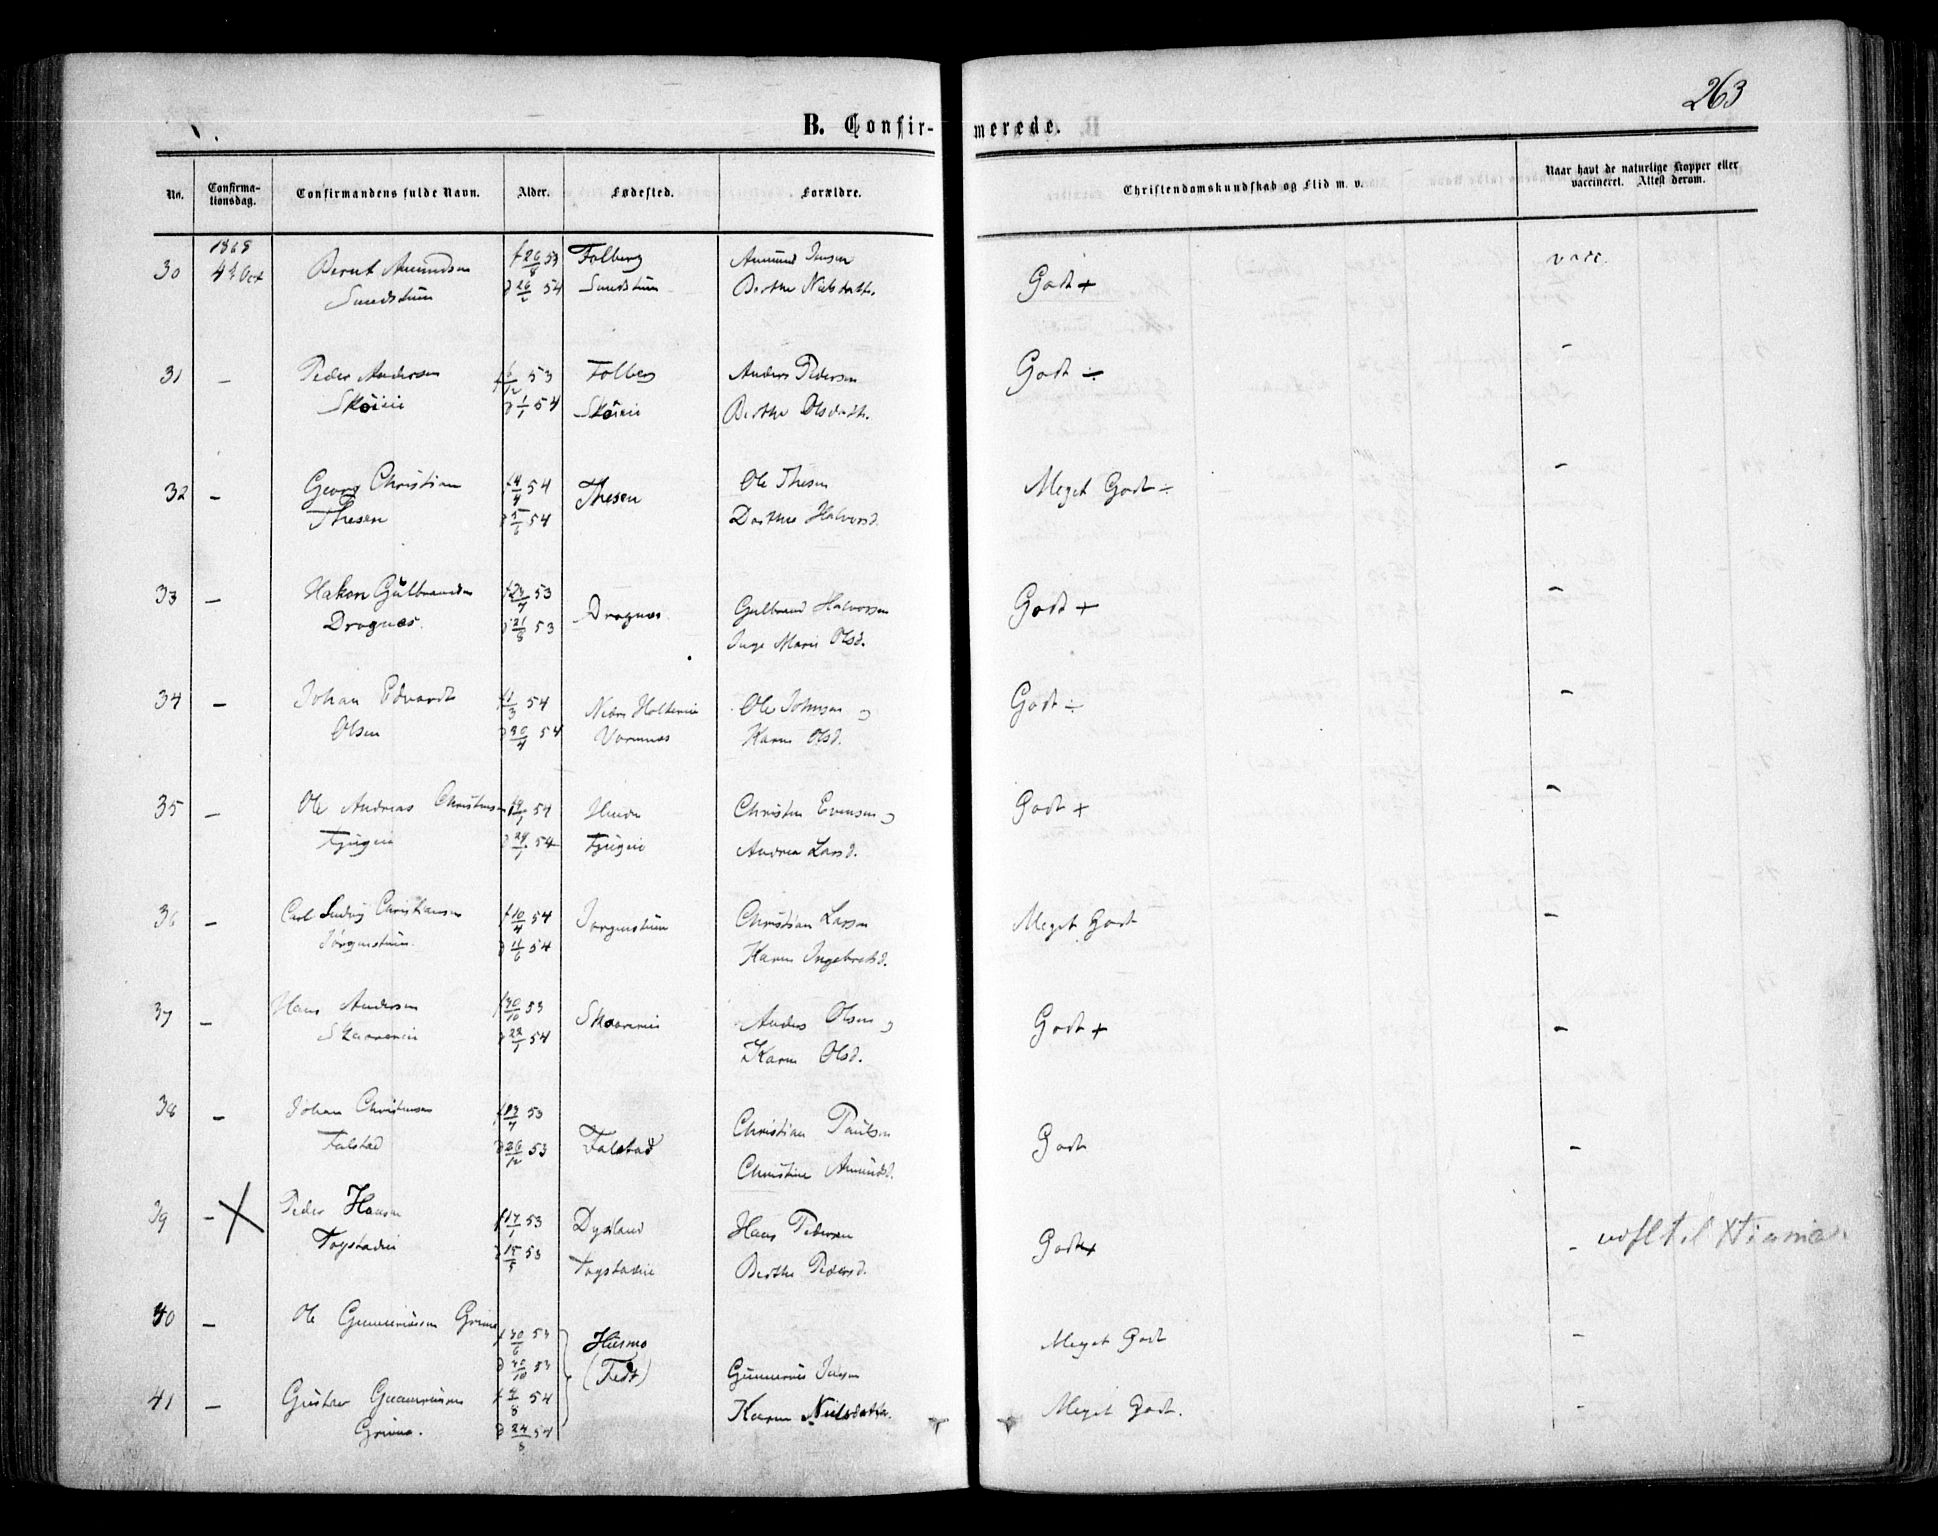 263
B. Confir-merede.
No. Confirma-tionsdag. Confirmandens fulde Navn. Alder. Fødested. Forældre. Christendomskundskab og Flid m. v. Naar havt de naturlige Kopper eller vaccineret. Attest derom.
1868
30 4de Oct Bernt Amundsen f 26/8 53 Folberg Amund Jensen Godt + vacc.
Sundstuen d 26/2 54 Sundstuen Berthe Nielsdatter
31 – Peder Andersen f 6/12 53 Folberg Anders Pedersen Godt ÷ –
Skøiii d 1/1 54 Skøiii Berthe Olsdatter
32 – Georg Christian f 4/4 54 Thesen Ole Thesen Meget Godt ÷ –
Thesen d 5/6 54 Dorthe Halvorsd.
33 – Hakon Gulbrandsen f 23/7 53 Dragnæs Gulbrand Halvorsen Godt + –
Dragnæs. d 21/8 53 Inge Marie Olsd.
34 – Johan Edvardt f 1/3 54 Holterie Ole Johnsen Godt ÷ –
Olsen d 30/4 54 Vormnæs Karen Olsd.
35 – Ole Andreas Christensen 54 Christen Evensen Godt + –
Fjugeie d 29/1 54 Fjugeie Andrea Larsd.
36 – Carl Ludvig Christiansen f 10/4 54 Jørgenstuen Christian Larsen Meget Godt –
Jørgenstuen. d 11/6 54 Karen Ingebretsd.
37 – Hans Andersen f 30/10 53 Skaarerie Anders Olsen Godt + –
Skaarerie d 22/1 54 Karen Olsd.
38 – Johan Christiansen f 13/7 53 Christian Paulsen Godt –
Falstad d 26/12 53 Falstad Christine Amundsd.
39 – X Peder Hansen f 17/1 53 Dysland Hans Pedersen Godt + –
Togstadie d 15/5 53 Togstadie Berthe Pedersd.
40 – Ole Gunneriusen Grime f 30/6 53 Husmo Meget Godt –
d 30/10 53 (Fedt) Gunnerius Jensen
41 – Gustav Gunneriusen f 4/8 54 Karen Nielsdatter. Meget Godt. –
Grimo. d 24/8 54